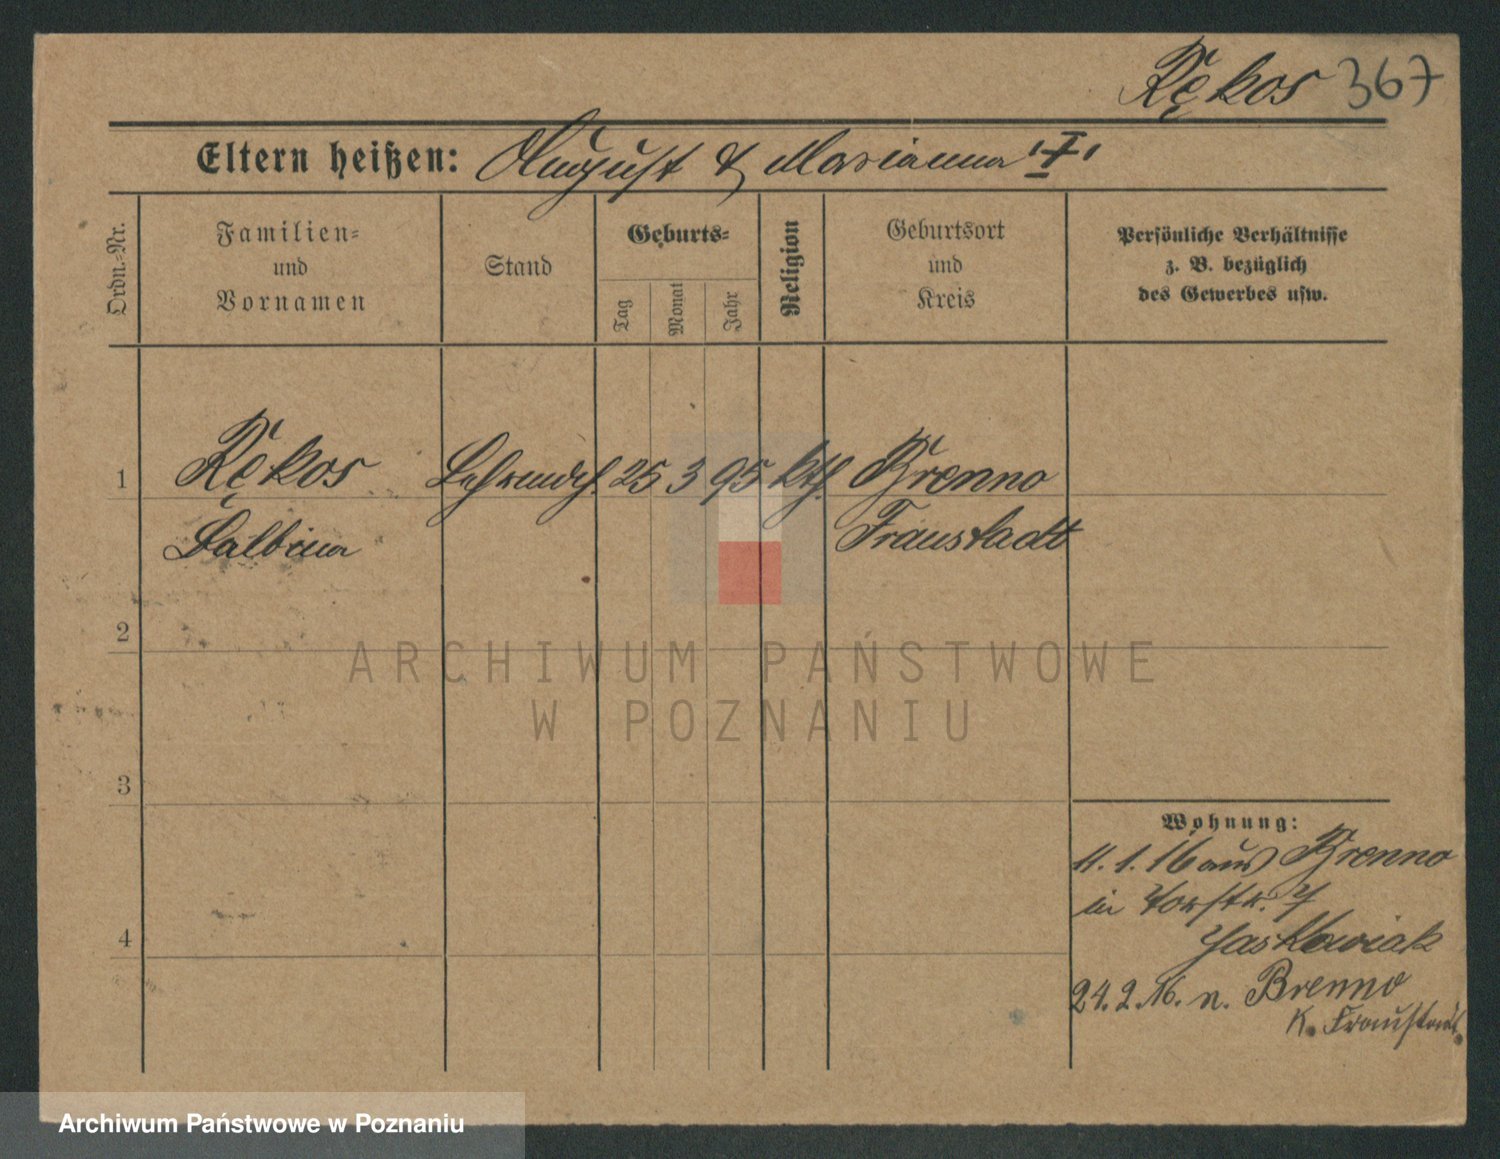 Rękos 367
Eltern heißen: August & Marianna
Ordn.-Nr.
Familien-
und
Vornamen
Stand
Geburts-
Tag
Monat
Jahr
Religion
Geburtsort
und
Kreis
Persönliche Verhältnisse
z. B. bezüglich
des Gewerbes usw.
1 Rękos 25 3 95 kth. Brenno
Balbina Fraustadt
2
3
4
Wohnung:
11.1.16 aus Brenno
in Vorstr. 7
Jaskowiak
24.2.16. n. Brenno
K. Fraustadt.
ARCHIWUM PAŃSTWOWE
W POZNANIU
Archiwum Państwowe w Poznaniu